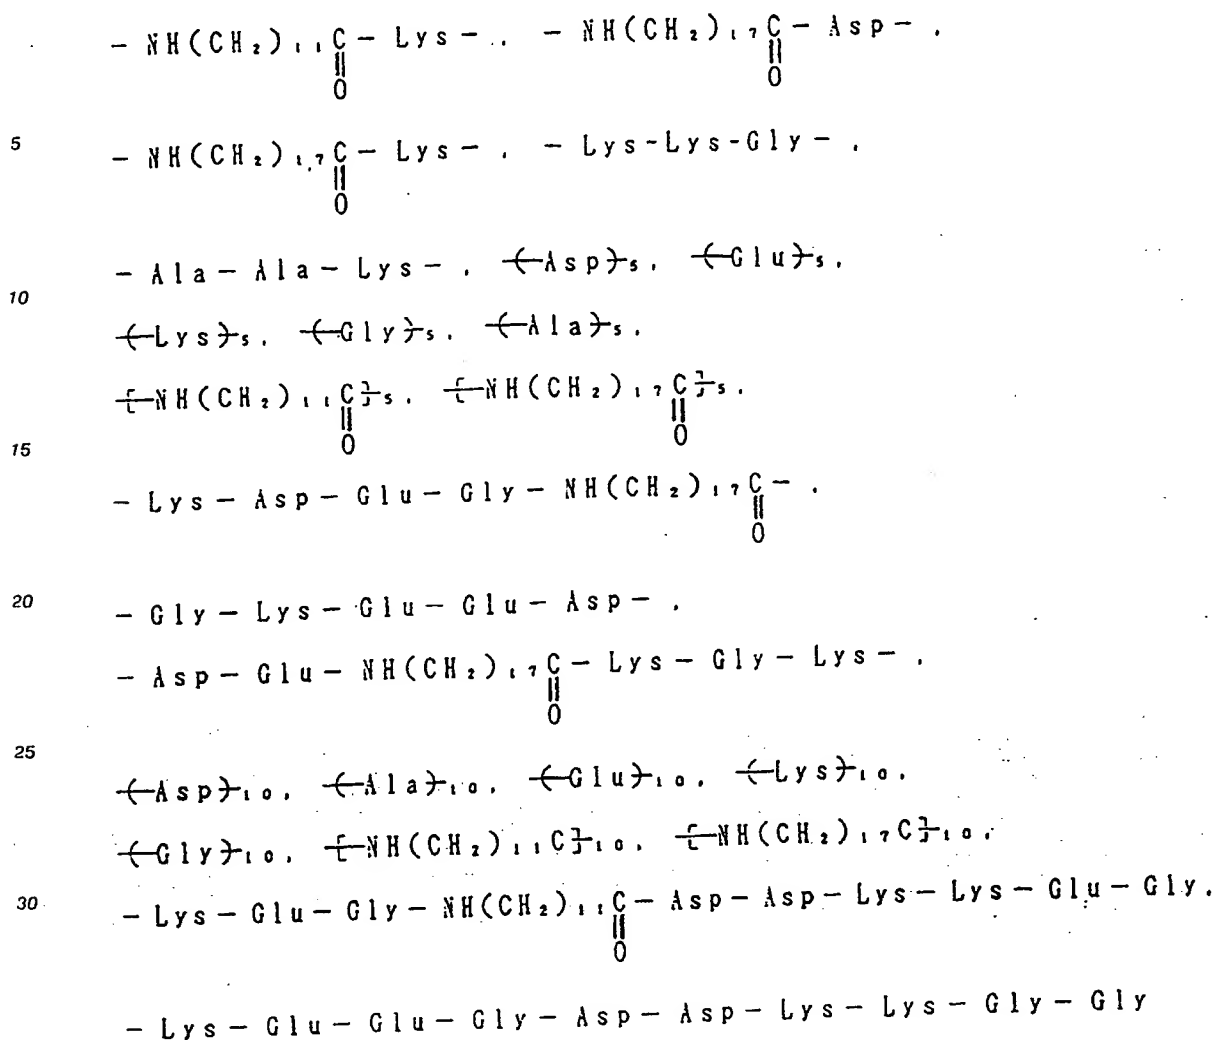 - NH(CH₂)₁₁C(=O)- Lys - , - NH(CH₂)₁₇C(=O)- Asp - ,
5 - NH(CH₂)₁₇C(=O)- Lys - , - Lys-Lys-Gly - ,
- Ala - Ala - Lys - , (-Asp)-₅, (-Glu)-₅,
10
(-Lys)-₅, (-Gly)-₅, (-Ala)-₅,
[-NH(CH₂)₁₁C(=O)]-₅, [-NH(CH₂)₁₇C(=O)]-₅,
15
- Lys - Asp - Glu - Gly - NH(CH₂)₁₇C(=O)- ,
20 - Gly - Lys - Glu - Glu - Asp - ,
- Asp - Glu - NH(CH₂)₁₇C(=O)- Lys - Gly - Lys - ,
25
(-Asp)-₁₀, (-Ala)-₁₀, (-Glu)-₁₀, (-Lys)-₁₀,
(-Gly)-₁₀, [-NH(CH₂)₁₁C]-₁₀, [-NH(CH₂)₁₇C]-₁₀,
30 - Lys - Glu - Gly - NH(CH₂)₁₁C(=O)- Asp - Asp - Lys - Lys - Glu - Gly,
- Lys - Glu - Glu - Gly - Asp - Asp - Lys - Lys - Gly - Gly